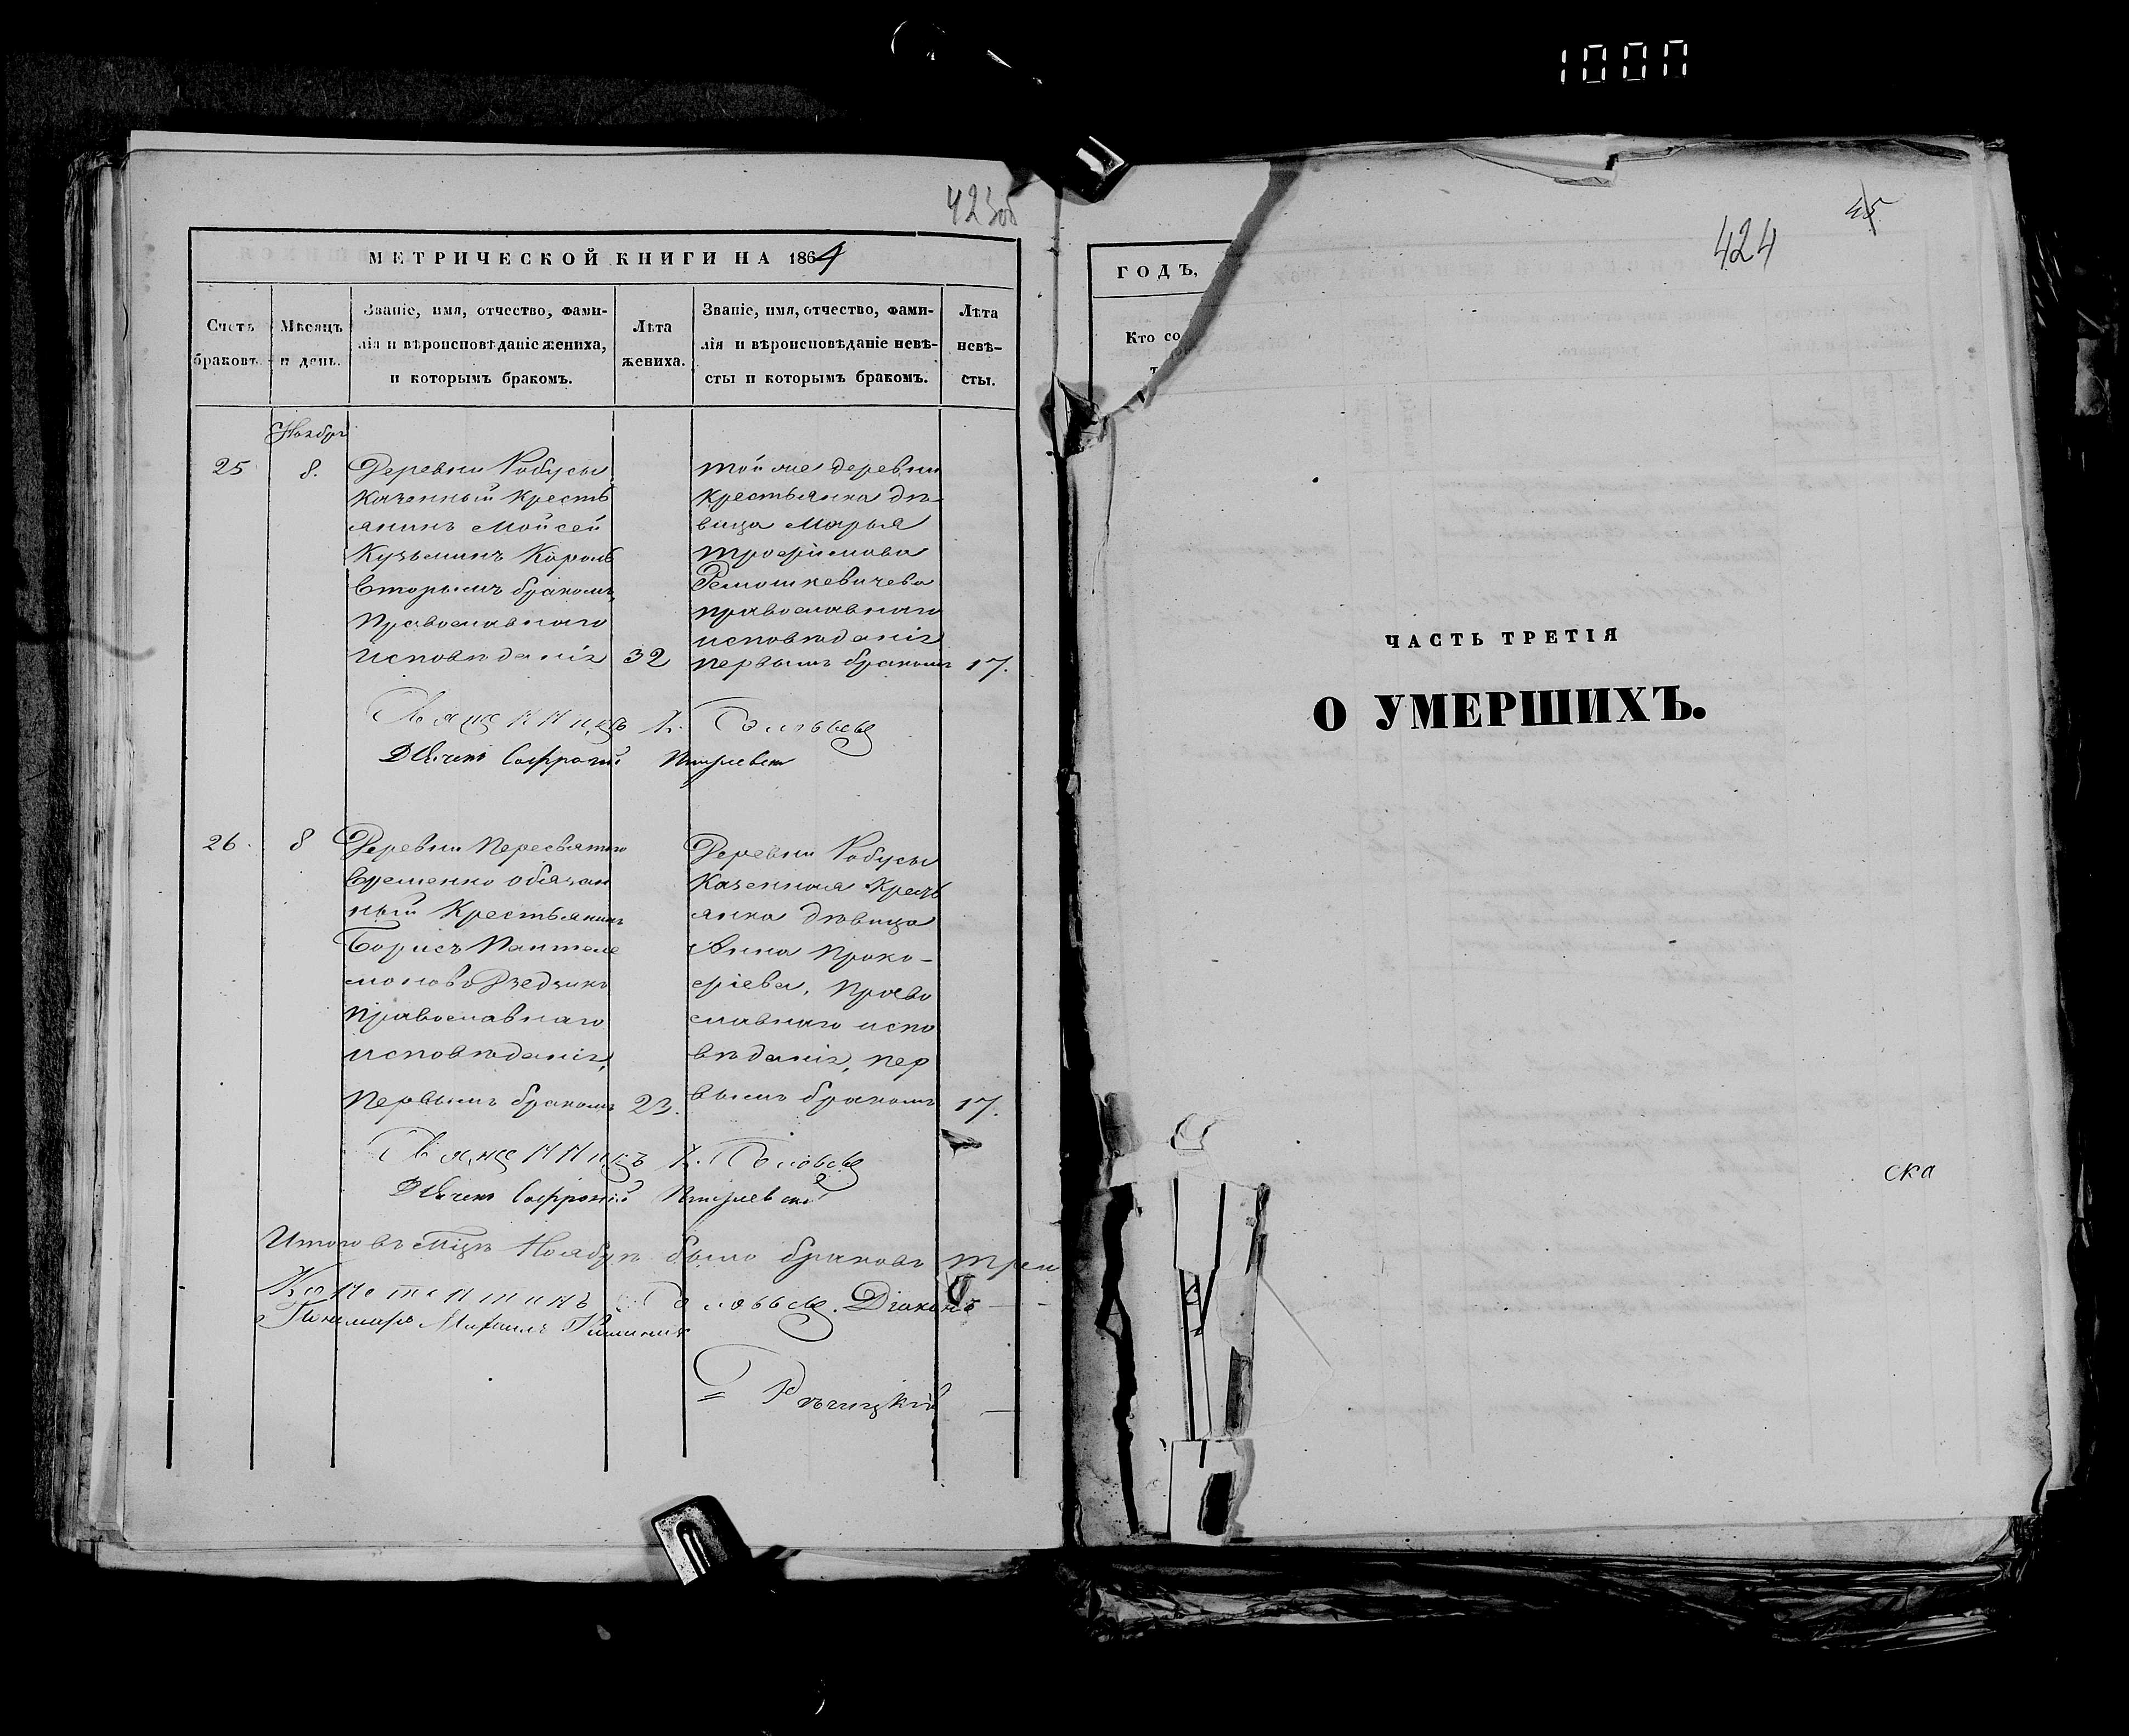 1000
423об
МЕТРИЧЕСКОЙ КНИГИ НА 1864
Счетъ браковъ.
Мѣсяцъ и день.
Званіе, имя, отчество, фами-
лія и вѣроисповѣданіе жениха,
и которымъ бракомъ.
Лѣта жениха.
Званіе, имя, отчество, фами-
лія и вѣроисповѣданіе невѣ-
сты и которымъ бракомъ.
Лѣта невѣ-
сты.
Ноябрь
25
8.
Деревни Робусы
Казенный кресть
янинъ Мойсей
Кузьминъ Король
Вторымъ бракомъ,
Православнаго
исповѣданія
32
той же деревни
крестьянка дѣ
вица Марья
Трофимова
православнаго
исповѣданія
первымъ бракомъ
17.
Священникъ К. Соловьевъ
Дьячекъ Софроній
26.
8
Деревни
временно обязан
ный Крестьянинъ
Борисъ Пантеле
монов
Православнаго
исповѣданія,
Первымъ бракомъ
23.
Деревни Робусы
Казенная Крест
янка дѣвица
Анна Проко-
фіева, Право
славнаго испо
вѣданія, пер
вымъ бракомъ
17.
Священникъ К. Соловьевъ
Дьячекъ Софроній
Итого въ Мцѣ Ноябрѣ было браковъ три
Константинъ Соловьевъ. Діаконъ
Пономарь Михаилъ
Рѣчицкій
45
424
ГОДЪ,
Кто со
т
ЧАСТЬ ТРЕТІЯ
О УМЕРШИХЪ.
ска